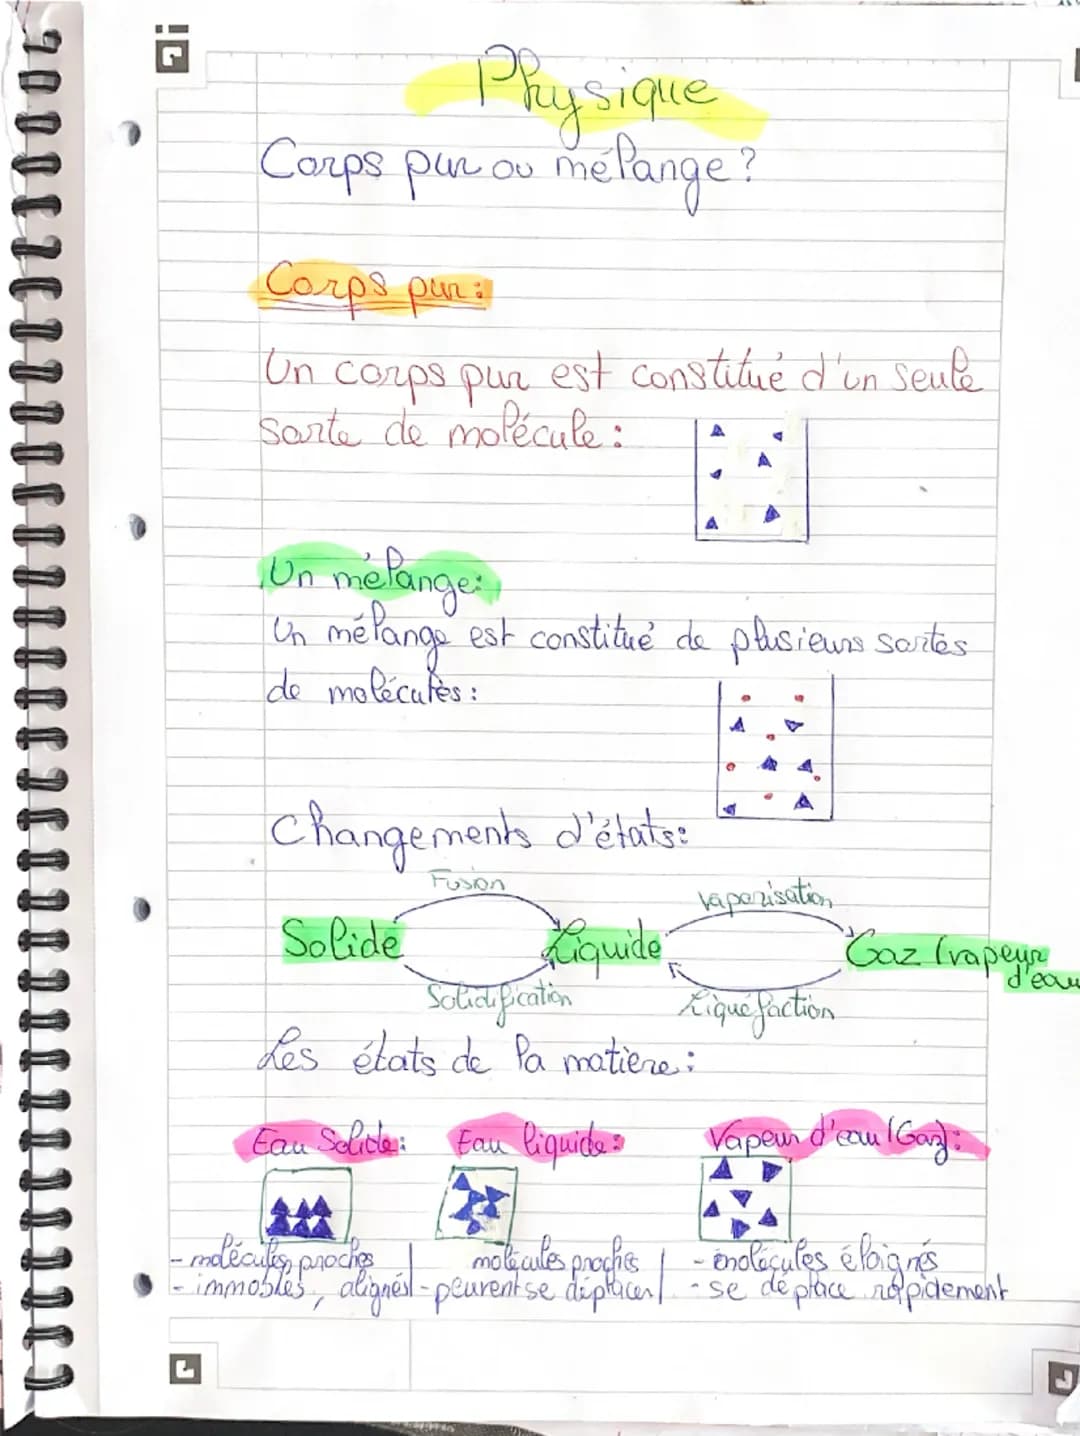 Physique
Corps pur ou mélange ?
Corps pur :
Un corps pur est constitué d'un seule
sorte de molécule :
Un mélange :
Un mélange est constitué de plusieurs sortes
de molécules :
Changements d'états :
Fusion
vaporisation
Solide
Liquide
Gaz (vapeur
d'eau
Solidification
Liquéfaction
Les états de la matière :
Eau Solide : Eau liquide : Vapeur d'eau (Gaz) :
- molécules proches | molécules proches | - molécules éloignés
- immobles, alignés | - peuvent se déplacer | - se déplace rapidement